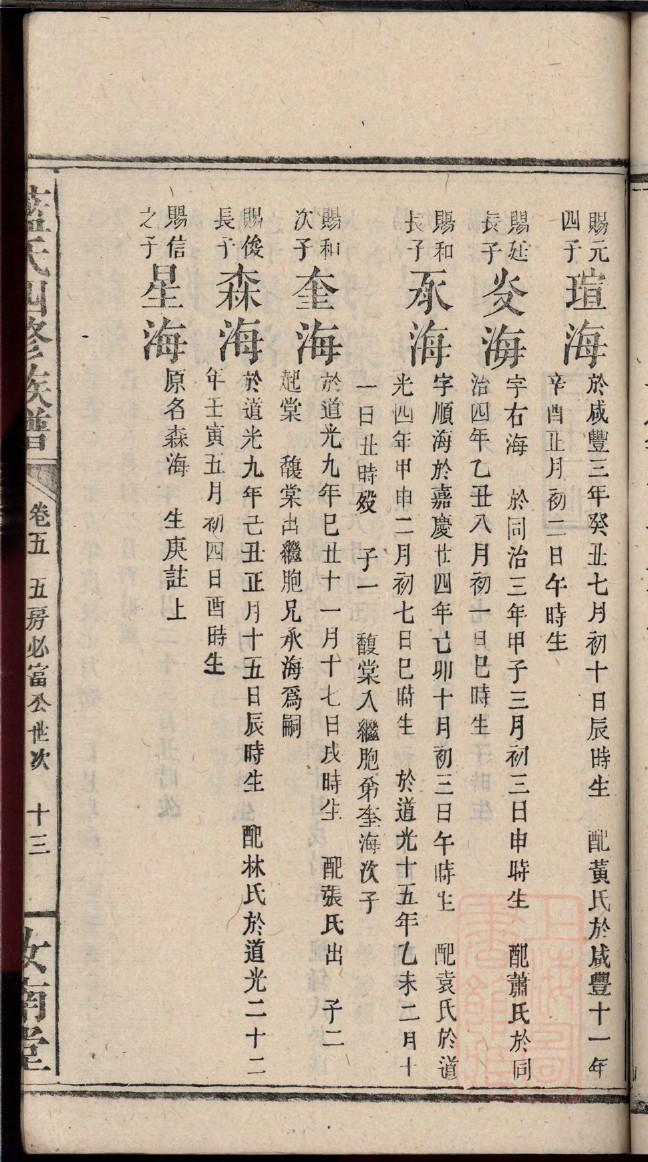 賜元四子瑄海於咸豐三年癸丑七月初十日辰時生 配黃氏於咸豐十一年
辛酉丑月初二日午時生
賜延長子炎海字右海 於同治三年甲子三月初三日申時生 配蕭氏於同
治四年乙丑八月初一日巳時生
賜和長子承海字順海於嘉慶廿四年己卯十月初三日午時生 配袁氏於道
光四年甲申二月初七日巳時生 於道光十五年乙未二月十
一日丑時殁 子一 馥棠入繼胞弟奎海次子
賜和次子奎海於道光九年巳丑十一月十七日戌時生 配張氏出 子二
起棠 馥棠出繼胞兄承海爲嗣
賜俊長子森海於道光九年己丑正月十五日辰時生 配林氏於道光二十二
年壬寅五月初四日酉時生
賜信之子星海原名森海 生庚註上
藍氏四修族譜 卷五 五房必富公世次 十三 汝南堂
上海圖書館藏